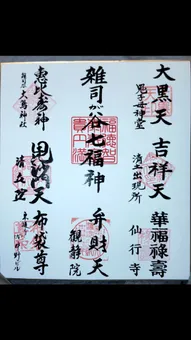 大黒天
鬼子母神堂
吉祥天
清土出現所
華福祿壽
仙行寺
雑司が谷七福神
弁財天
観静院
恵比寿神
大鳥神社
毘沙門天
清立院
布袋尊
中野ビル